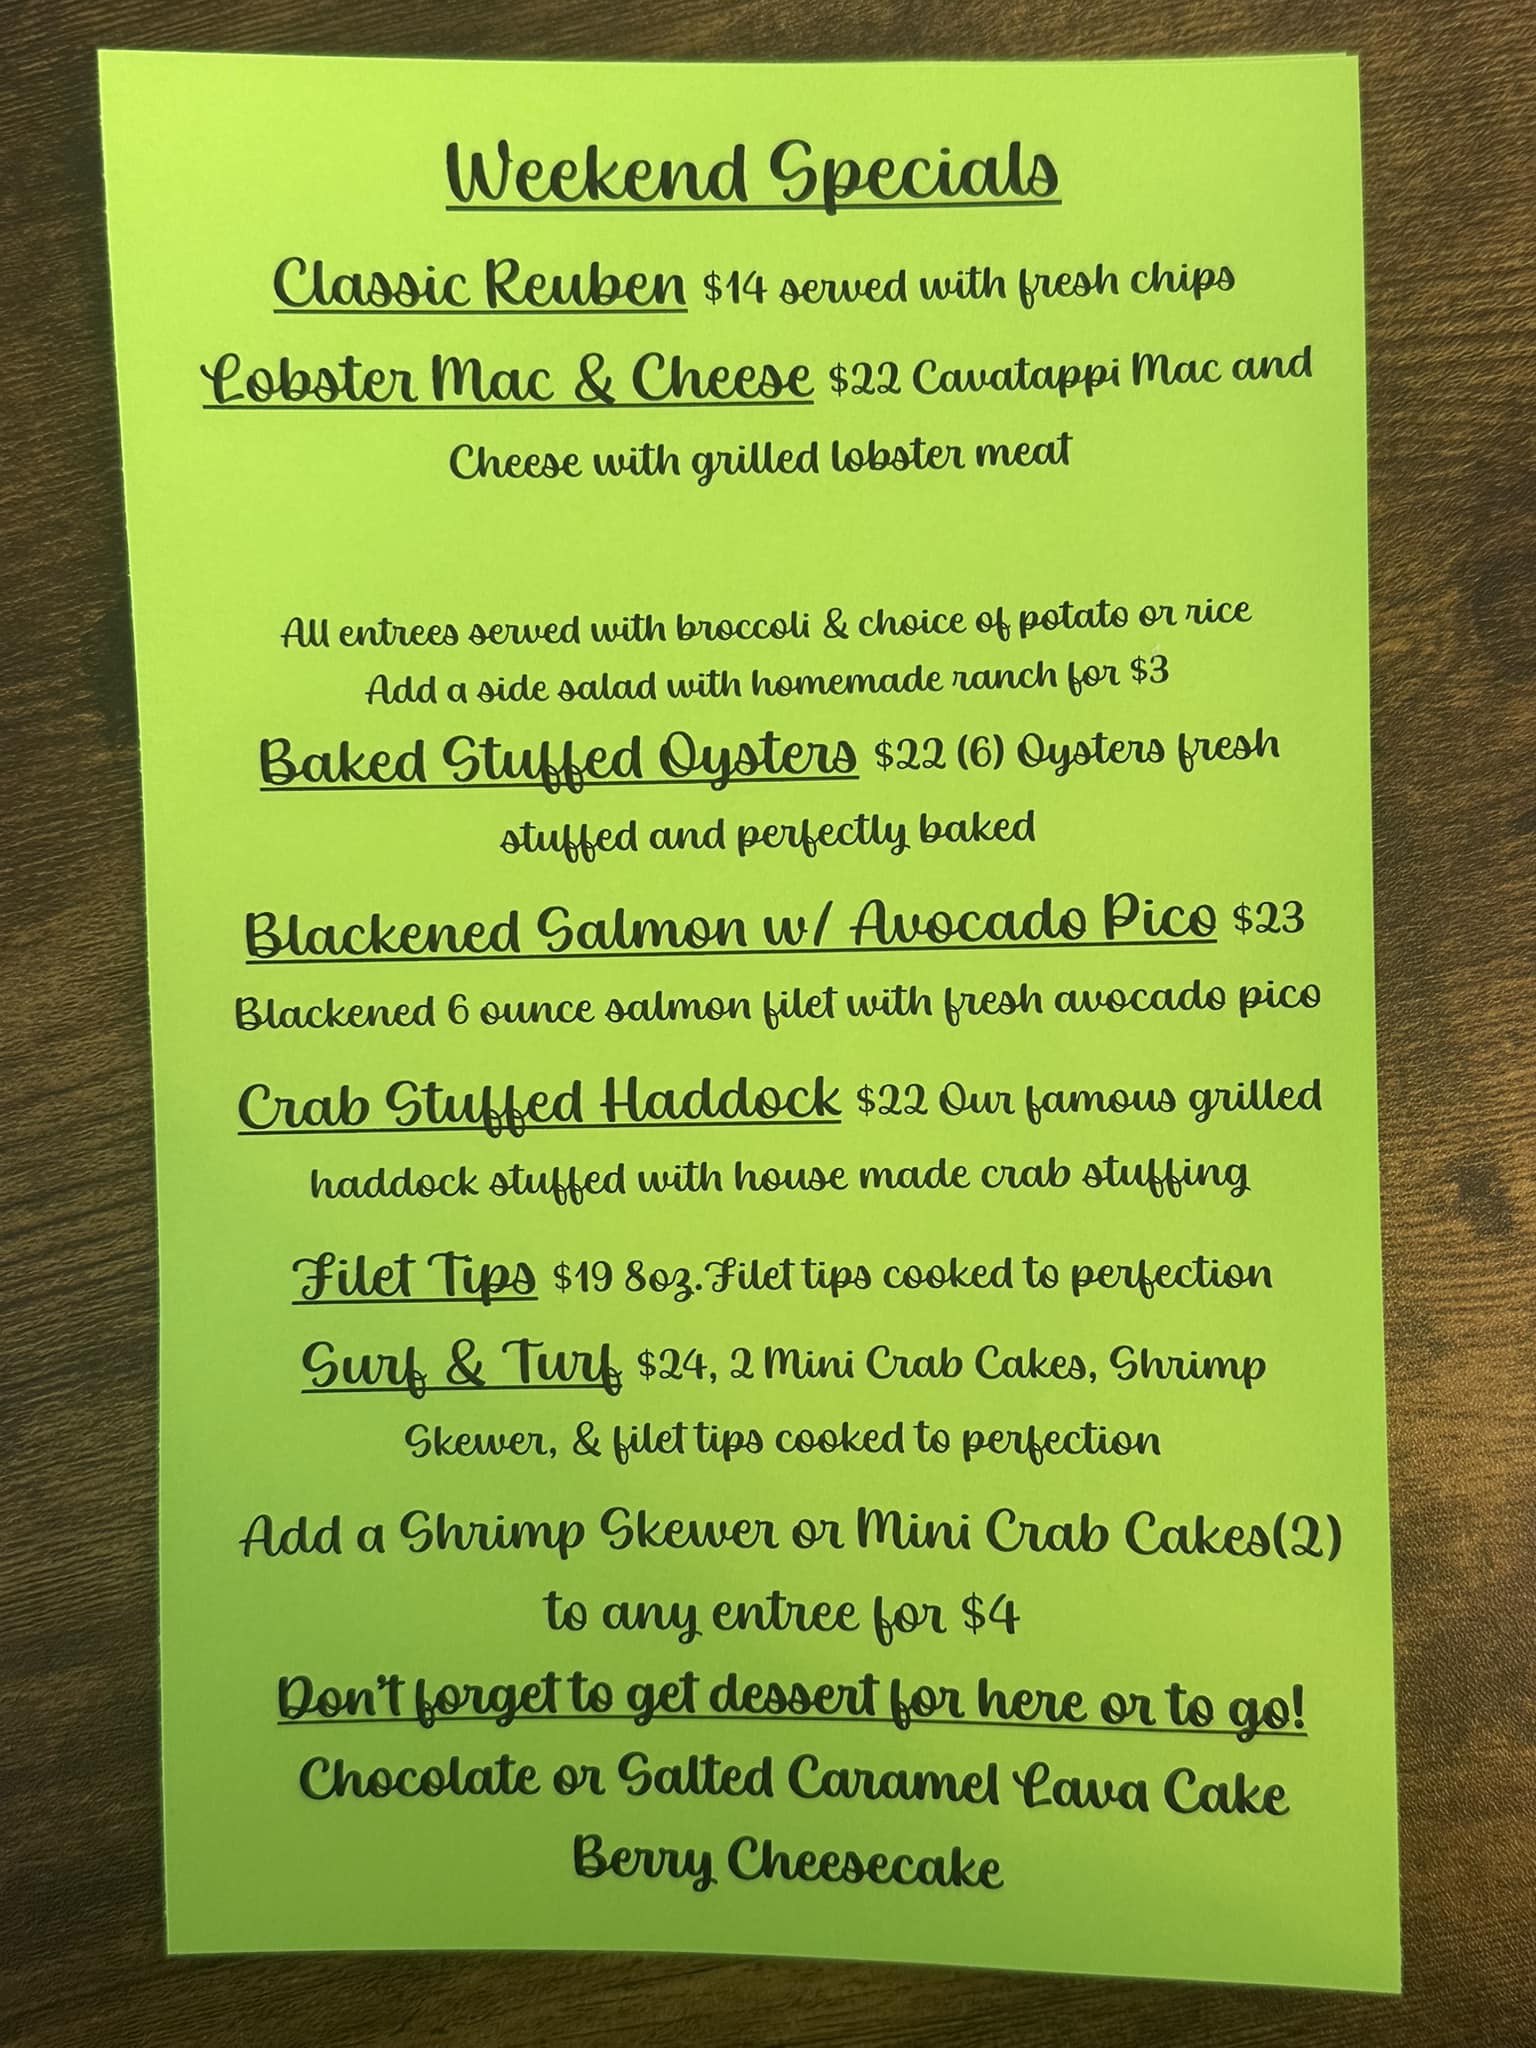 Weekend Specials
Classic Reuben $14 served with fresh chips
Lobster Mac & Cheese $22 Cavatappi Mac and
Cheese with grilled lobster meat
All entrees served with broccoli & choice of potato or rice
Add a side salad with homemade ranch for $3
Baked Stuffed Oysters $22 (6) Oysters fresh
stuffed and perfectly baked
Blackened Salmon w/ Avocado Pico $23
Blackened 6 ounce salmon filet with fresh avocado pico
Crab Stuffed Haddock $22 Our famous grilled
haddock stuffed with house made crab stuffing
Filet Tips $19 8oz.Filet tips cooked to perfection
Surf & Turf $24, 2 Mini Crab Cakes, Shrimp
Skewer, & filet tips cooked to perfection
Add a Shrimp Skewer or Mini Crab Cakes(2)
to any entree for $4
Don't forget to get dessert for here or to go!
Chocolate or Salted Caramel Lava Cake
Berry Cheesecake